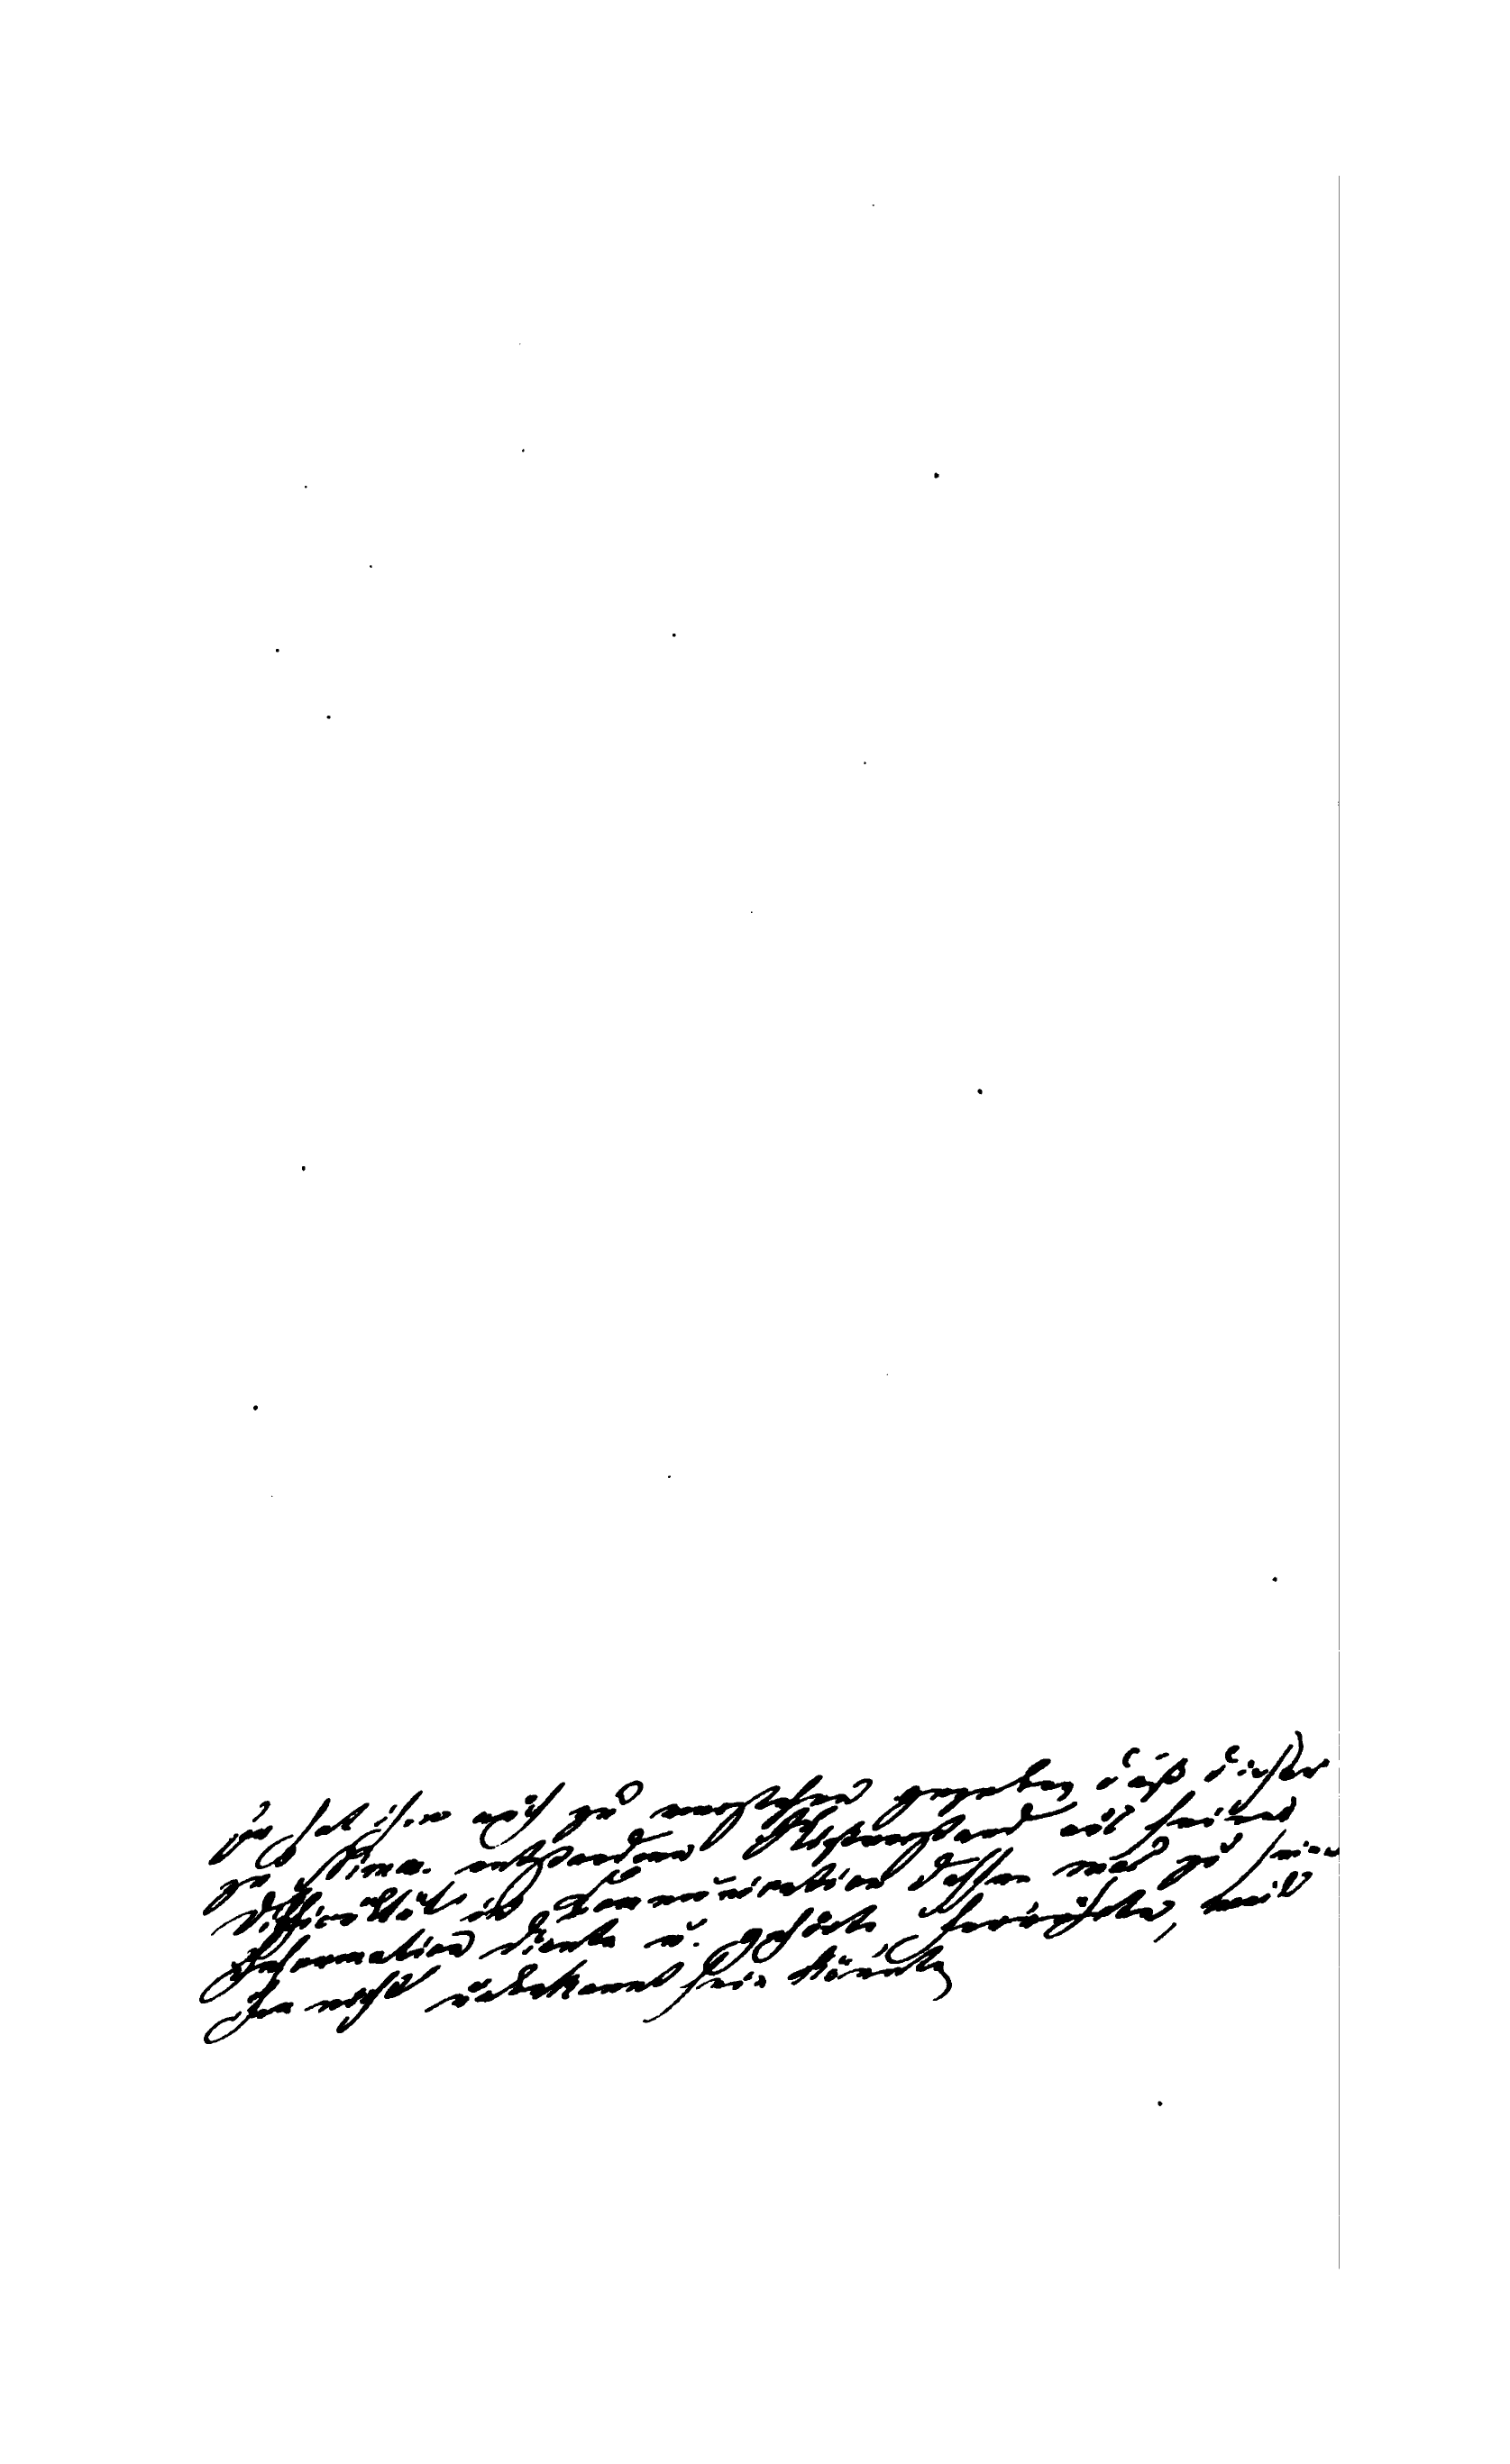 man hat ihm auch zu verstehen gegeben, daß dieser
zu Pirna. entstandene Mißverstand aus seiner
Difficultät in Communication dessen was zu seiner
Information diente u. gehörte, herrührte, weil
ihm nicht unbekannt sein könnte